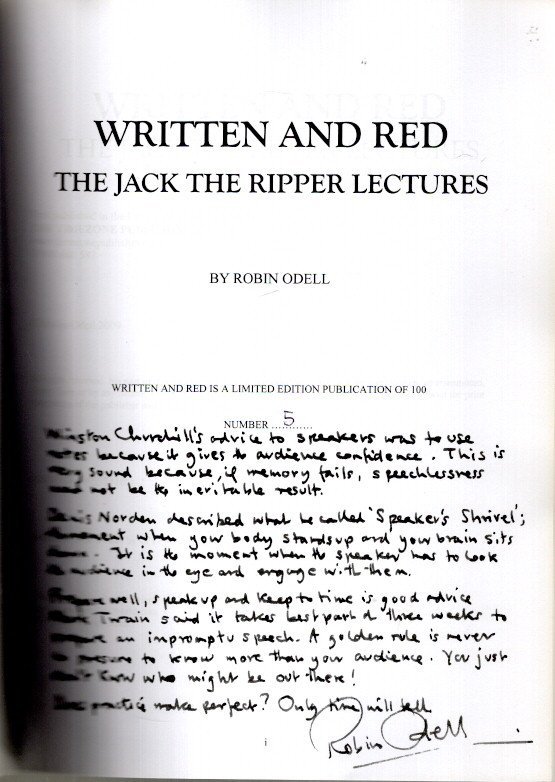 WRITTEN AND RED
THE JACK THE RIPPER LECTURES
BY ROBIN ODELL
WRITTEN AND RED IS A LIMITED EDITION PUBLICATION OF 100
NUMBER ...5.........
Winston Churchill's advice to speakers was to use
notes because it gives the audience confidence. This is
very sound because, if memory fails, speechlessness
need not be the inevitable result.
Denis Norden described what he called 'Speaker's Shrivel';
the moment when your body stands up and your brain sits
down. It is the moment when the speaker has to look
the audience in the eye and engage with them.
Prepare well, speak up and keep to time is good advice
Mark Twain said it takes best part of three weeks to
prepare an impromptu speech. A golden rule is never
to presume to know more than your audience. You just
don't know who might be out there!
Does practice make perfect? Only time will tell
Robin Odell
i